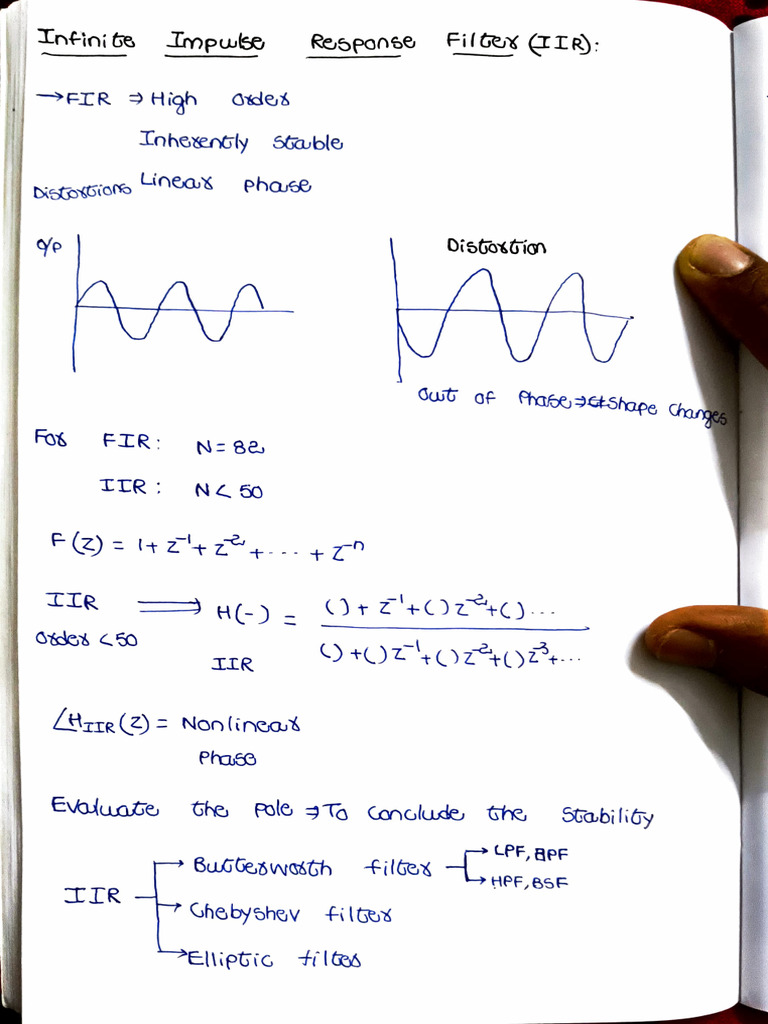 Infinite Impulse Response Filter (IIR):
→FIR ⇒ High order
Inherently stable
Distortions Linear phase
O/P
Distortion
Out of Phase ⇒ Shape changes
For FIR: N = 82
IIR: N < 50
F(z) = 1 + z⁻¹ + z⁻² + ... + z⁻ⁿ
IIR ⟹ H(-) = () + z⁻¹ + () z⁻² + () ...
Order < 50 () + () z⁻¹ + () z⁻² + () z⁻³ + ...
IIR
∠H_IIR(z) = Nonlinear
Phase
Evaluate the pole ⇒ To conclude the stability
IIR → Butterworth filter → LPF, BPF
→ HPF, BSF
→ Chebyshev filter
→ Elliptic filter